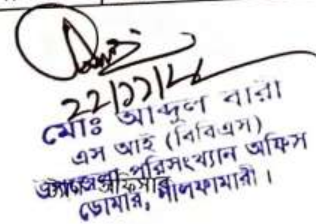 22/11/2৮
মোঃ আব্দুল বারী
এস আই (বিবিএস)
উপজেলা পরিসংখ্যান অফিস
ডোমার, নীলফামারী।